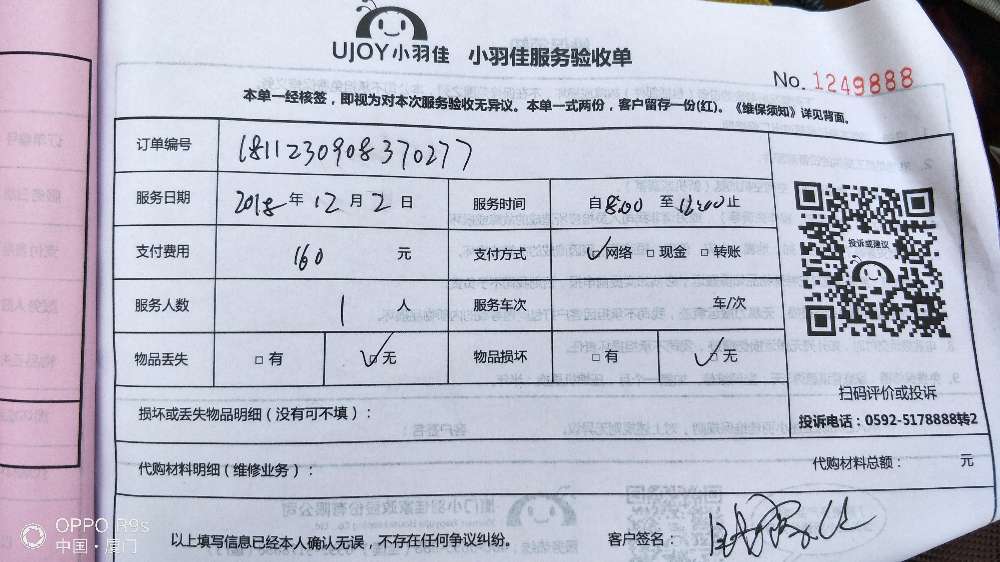 UJOY小羽佳 小羽佳服务验收单
No. 1249888
本单一经核签，即视为对本次服务验收无异议。本单一式两份，客户留存一份(红)。《维保须知》详见背面。
订单编号 1811230908370277
服务日期 2018年 12月 2日 服务时间 自8:00 至12:00止
支付费用 160 元 支付方式 网络 现金 转账
服务人数 1 人 服务车次 车/次
物品丢失 有 无 物品损坏 有 无
投诉或建议
扫码评价或投诉
投诉电话：0592-5178888转2
损坏或丢失物品明细（没有可不填）：
代购材料明细（维修业务）： 代购材料总额： 元
以上填写信息已经本人确认无误，不存在任何争议纠纷。 客户签名：
OPPO R9s
中国·厦门